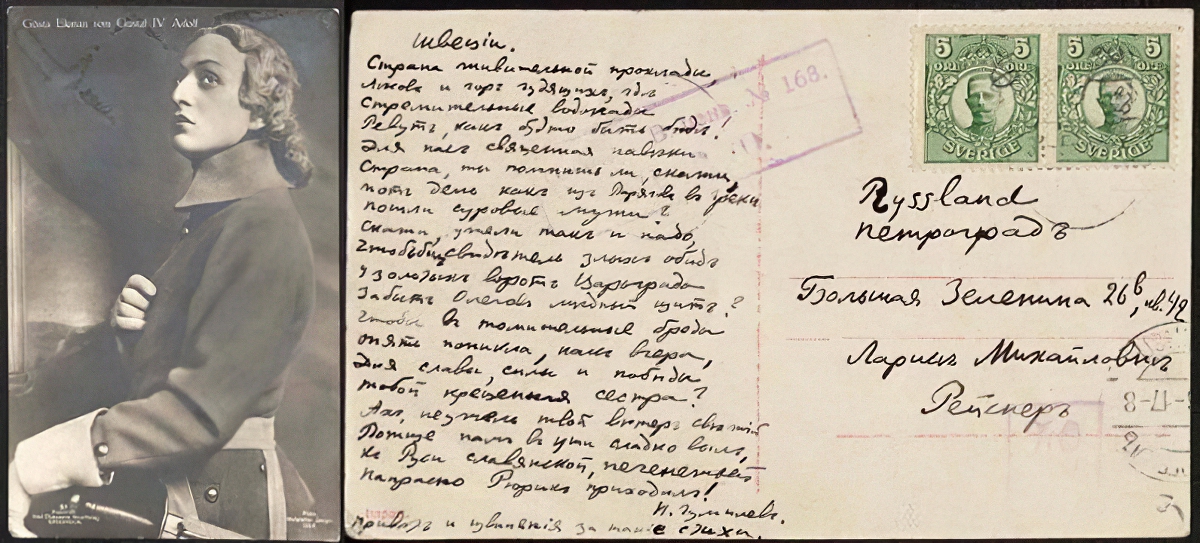 Gösta Ekman som Gustaf IV Adolf
Швецiя.
Страна живительной прохлады
Лѣсовъ и горъ гудящихъ, гдѣ
Стремительные водопады
Ревутъ, какъ будто быть бѣдѣ!
Для насъ священная навѣки
Страна, ты помнишь ли, скажи,
Тотъ день какъ изъ Варягъ в греки
пошли суровые мужи?
Скажи, ужели такъ и надо,
Чтобъ былъ, свидѣтель злыхъ обидъ
У золотыхъ воротъ Царьграда
Забытъ Олеговъ мѣдный щитъ?
Чтобы в томительные бреды
опять поникла, какъ вчера,
Для славы, силы и побѣды
тобой крещенная сестра?
Ахъ, неужели твой вѣтеръ свѣжiй
Вотще намъ в уши сладко вылъ,
Къ Руси славянской, печенежьей
Напрасно Рюрикъ приходилъ!
Н. Гумилевъ.
Привѣтъ и извиненiя за такiе стихи.
№ 168.
5 5
ÖRE ÖRE
SVERIGE
5 5
ÖRE ÖRE
SVERIGE
Ryssland
петроградъ
Большая Зеленина 26в, кв. 42
Ларисѣ Михайловнѣ
Рейснеръ
8-17-